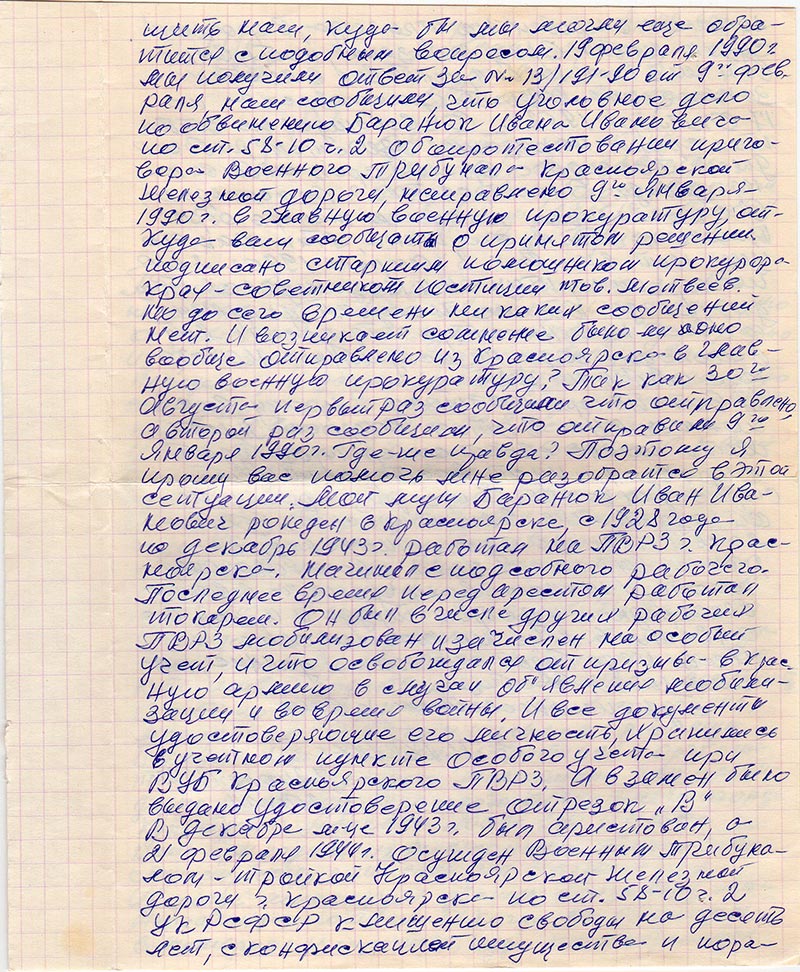 щить нам, куда бы мы могли еще обра-
тится с подобным вопросом. 19 февраля 1990г
мы получили ответ за № 13/191-90 от 9го фев-
раля, нам сообщили, что уголовное дело
по обвинению Баранюк Ивана Ивановича
по ст. 58-10 ч. 2 Обопротестовании приго-
вора Военного Трибунала Красноярской
железной дороги, направлено 9го Января
1990г. в главную военную прокуратуру, от-
куда вам сообщат о принятом решении.
подписано старшим помошником прокурора
края-советником юстиции тов. Матвеев.
но до сего времени ни каких сообщений
нет. И возникает сомнение было-ли оно
вообще отправлено из Красноярска в Глав-
ную военную прокуратуру? Так как 30го
Августа первый раз сообщили что отправлено,
а второй раз сообщили, что отправили 9го
Января 1990г. Где-же правда? Поэтому я
прошу вас помочь мне разобратся в этой
сетуации. Мой муж Баранюк Иван Ива-
нович рожден в Красноярске, с 1928 года
по декабрь 1943г. работал на ПВРЗ г. Крас-
ноярска. Начинал с подсобного рабочего.
Последнее время перед арестом работал
токарем. Он был в числе других рабочих
ПВРЗ мобилизован и зачислен на особый
учет, и что освобождался от призыва в крас-
ную армию в случаи об'явление мобили-
зации и во время войны. И все документы
удостоверяющие его личность, хранились
в учетном пункте особого учета при
ВУБ Красноярского ПВРЗ. А взамен было
выдано удостоверение отрезок „В"
В декабре м-це 1943г. был арестован, а
21 февраля 1944г. Осужден Военным Трибуна-
лом-тройкой Красноярской железной
дороги г. Красноярска по ст. 58-10 ч. 2
УК РСФСР к лишению свободы на десять
лет, с конфискацией имущества и пора-